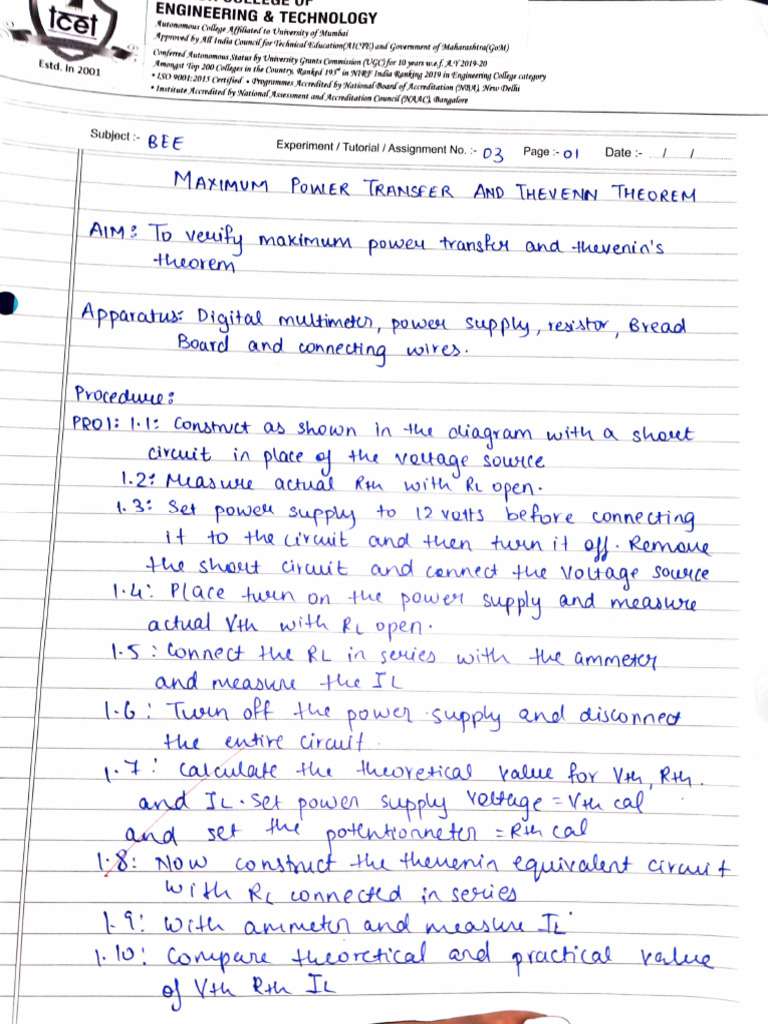 COLLEGE OF
ENGINEERING & TECHNOLOGY
tcet
Estd. In 2001
Autonomous College Affiliated to University of Mumbai
Approved by All India Council for Technical Education(AICTE) and Government of Maharashtra(GoM)
Conferred Autonomous Status by University Grants Commission (UGC) for 10 years w.e.f. A.Y 2019-20
Amongst Top 200 Colleges in the Country, Ranked 193rd in NIRF India Ranking 2019 in Engineering College category
• ISO 9001:2015 Certified • Programmes Accredited by National Board of Accreditation (NBA), New Delhi
• Institute Accredited by National Assessment and Accreditation Council (NAAC), Bangalore
Subject :- BEE Experiment / Tutorial / Assignment No. :- 03 Page :- 01 Date :- / /
MAXIMUM POWER TRANSFER AND THEVENN THEOREM
AIM: To verify maximum power transfer and thevenin's
theorem
Apparatus: Digital multimeter, power supply, resistor, Bread
Board and connecting wires.
Procedure:
PRO1: 1.1: Construct as shown in the diagram with a short
circuit in place of the voltage source
1.2: Measure actual Rth with RL open.
1.3: Set power supply to 12 volts before connecting
it to the circuit and then turn it off. Remove
the short circuit and connect the voltage source
1.4: Place turn on the power supply and measure
actual Vth with RL open.
1.5: Connect the RL in series with the ammeter
and measure the IL
1.6: Turn off the power supply and disconnect
the entire circuit.
1.7: Calculate the theoretical value for Vth, Rth.
and IL. Set power supply voltage = Vth cal
and set the potentionneter = Rth cal
1.8: Now construct the thevenin equivalent circuit
with RL connected in series
1.9: With ammeter and measure IL
1.10: Compare theoretical and practical value
of Vth Rth IL